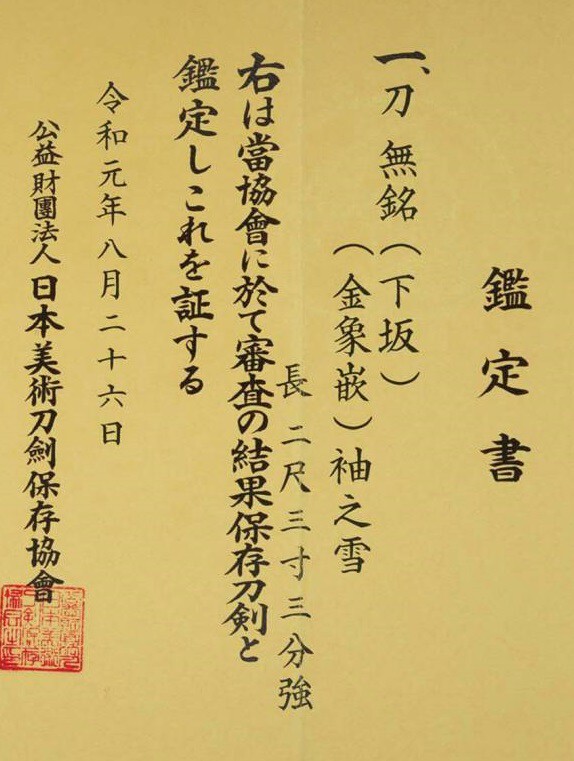 鑑定書
一、刀 無銘(下坂)
(金象嵌)袖之雪
長二尺三寸三分強
右は當協會に於て審査の結果保存刀剣と
鑑定しこれを証する
令和元年八月二十六日
公益財團法人日本美術刀劍保存協會